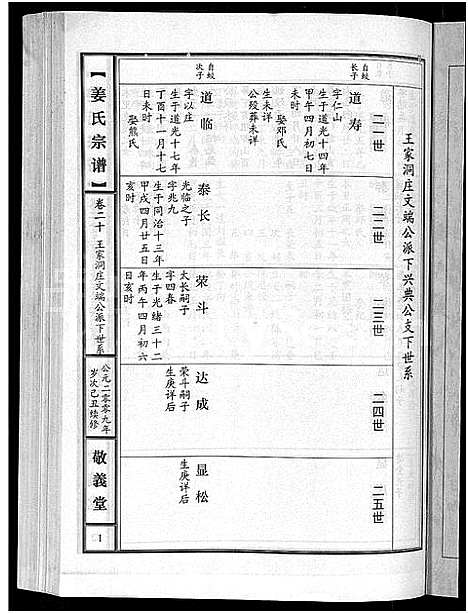 王家洞庄文端公派下兴典公支下世系
二一世
自蛟
长子
道寿
字仁山
生于道光十四年
甲午四月初七日
未时
娶邓氏
生未详
公殁葬未详
自蛟
次子
道临
字以庄
生于道光十七年
丁酉十一月十七
日未时
娶熊氏
二二世
泰长
光临之子
字兆九
生于同治十三年
甲戌四月廿五日
亥时
二三世
荣斗
太长嗣子
字四春
生于光绪三十二
年丙午四月初六
日亥时
二四世
达成
荣斗嗣子
生庚详后
二五世
显松
生庚详后
【姜氏宗谱】
卷二十 王家洞庄文端公派下世系
公元二零零九年
岁次己丑续修
敬義堂
1